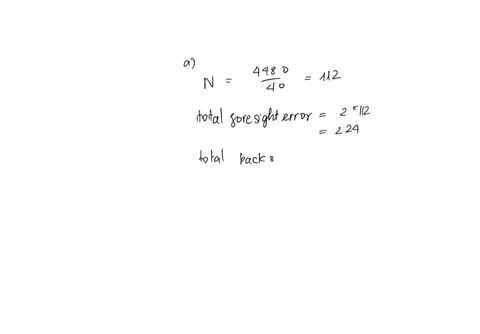 a)
N = 4480/40 = 112
total foresight error = 2*112
= 224
total backs